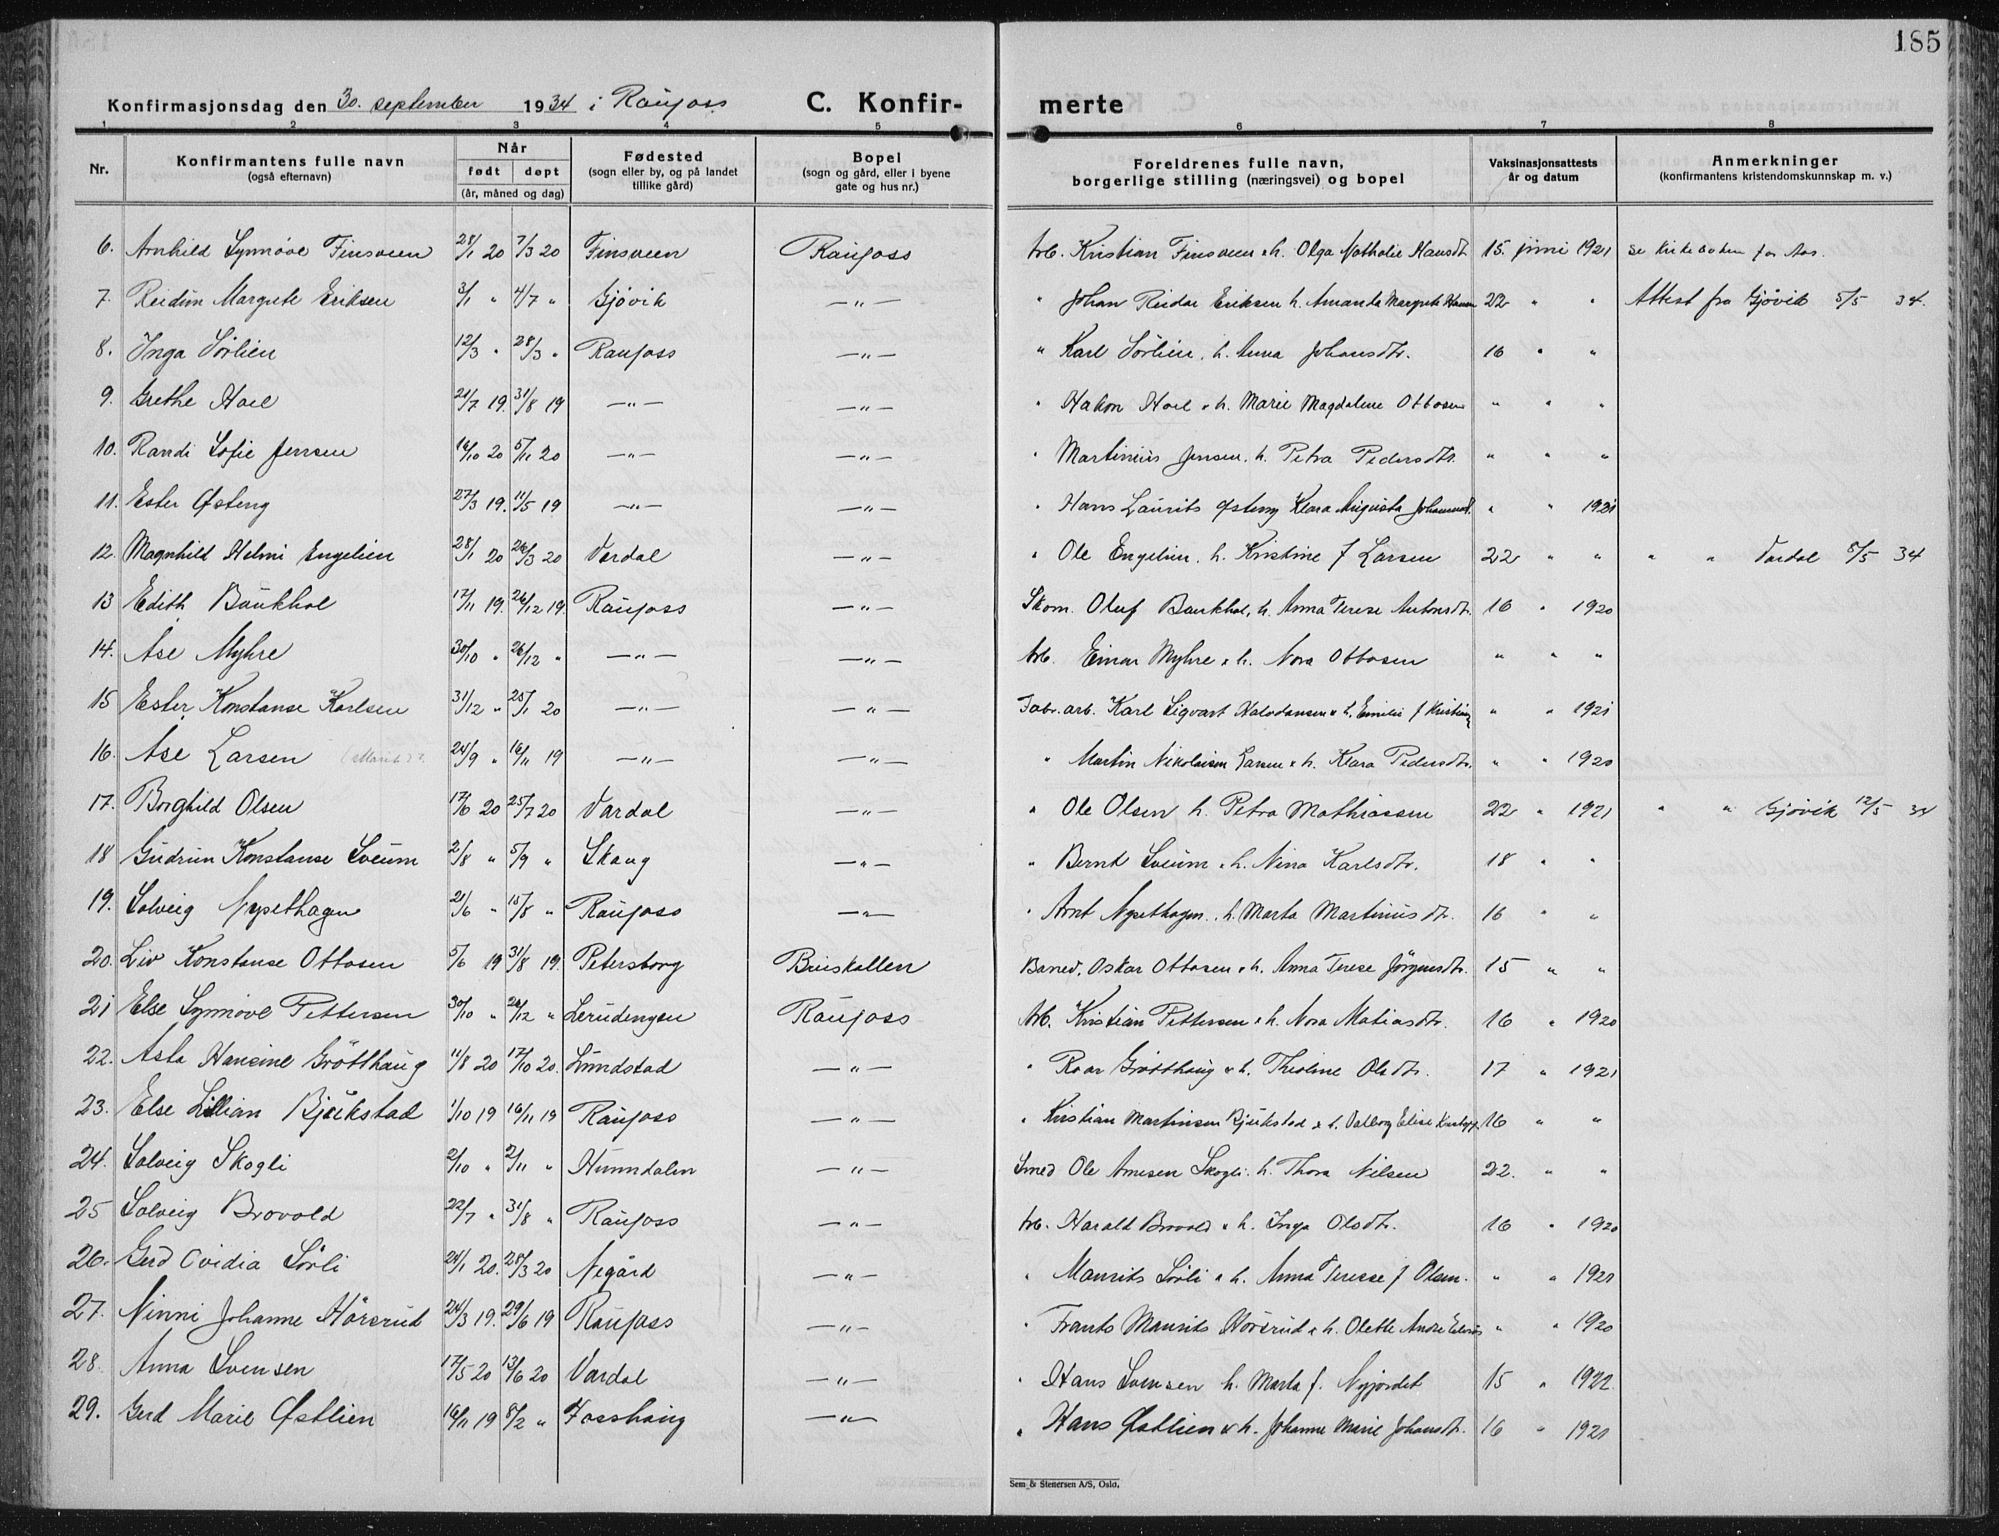 185
Konfirmasjonsdag den 30. september 1934 i Raufoss. C. Konfir- merte
1 2 3 4 5 6 7 8
Nr. Konfirmantens fulle navn (også efternavn) Når født døpt (år, måned og dag) Fødested (sogn eller by, og på landet tillike gård) Bopel (sogn og gård, eller i byene gate og hus nr.) Foreldrenes fulle navn, borgerlige stilling (næringsvei) og bopel Vaksinasjonsattests år og datum Anmerkninger (konfirmantens kristendomskunnskap m. v.)
6. Arnhild Synnøve Finsveen 28/1 20 7/3 20 Finsveen Raufoss Arb. Kristian Finsveen o h. Olga Nathalie Hansdt. 15. juni 1921 se kirkeboken for Aas.
7. Reidun Margrete Eriksen 3/1 " 4/7 " Gjøvik —"— " Johan Reidar Eriksen h. Amanda Margrete Hansen 22 " " Attest fra Gjøvik 5/5 34.
8. Inga Sørlien 12/3 " 28/3 " Raufoss —"— " Karl Sørlien, h. Anna Johansdtr. 16 " "
9. Grethe Hoel 21/7 19. 31/8 19 —"— —"— " Håkon Hoel o h. Marie Magdalene Ottosen " " "
10. Randi Sofie Jensen 14/10 20 5/11 20 —"— —"— " Martinius Jensen. h. Petra Pedersdtr. " " "
11. Ester Østeng 27/3 19. 11/5 19 —"— —"— " Hans Laurits Østeng Klara Augusta Johannesdt. " " 1921
12. Magnhild Helmi Engelien 28/1 20 26/3 20 Vardal —"— " Ole Engelien. h. Kristine f Larsen 22 " " " " Vardal 8/5 34
13 Edith Baukhol 17/11 19. 26/12 19. Raufoss —"— Skom. Oluf Baukhol, h. Anna Terese Antonsdt. 16 " 1920
14. Åse Myhre 30/10 " 26/12 " —"— —"— Arb. Einar Myhre o h. Nora Ottosen " " "
15 Ester Konstanse Karlsen 31/12 " 25/1 20 —"— —"— Fabr. arb. Karl Sigvart Halvdansen o h. Emilie f Kristians " " 1921
16. Åse Larsen (Marit)? 24/9 " 16/11 19 —"— —"— " Martin Nikolaisen Larsen o h. Klara Pedersdtr. " " 1920
17. Borghild Olsen 17/6 20 25/7 20 Vardal —"— " Ole Olsen h. Petra Mathiassen 22 " 1921 " " Gjøvik 12/5 34
18 Gudrun Konstanse Sveum 2/8 " 5/9 " Skaug —"— " Bernt Sveum o h. Nina Karlsdtr. 18 " "
19. Solveig Nysethagen 21/6 " 15/8 " Raufoss —"— " Arnt Nysethagen. h. Marta Martiniusdtr. 16 " "
20. Liv Konstanse Ottosen 5/6 19 31/8 19. Petersborg Bruskallen Baned. Oskar Ottosen o h. Anna Terese Jørgensdtr. 15 " "
21 Else Synnøve Pettersen 30/10 " 26/12 " Lerudengen Raufoss Arb. Kristian Pettersen o h. Nora Matiasdtr. 16 " 1920
22. Asta Hansine Grøtthaug 11/8 20 17/10 20. Lundstad —"— " Roar Grøtthaug o h. Theoline Olsdtr. 17 " 1921
23. Else Lillian Bjukstad 1/10 19 16/11 19 Raufoss —"— " Kristian Martinsen Bjukstad o h. Valborg Elise 16 " "
24. Solveig Skogli 2/10 " 2/11 " Hunndalen —"— Smed Ole Arnesen Skogli. h. Thora Nilsen 22. " "
25 Solveig Brovold 22/7 " 31/8 " Raufoss —"— Arb. Harald Brovold o h. Inga Olsdtr. 16 " 1920
26. Gerd Ovidia Sørli 24/1 20. 28/3 20 Negård —"— " Maurits Sørli o h. Anna Terese f Olsen. " " 1921
27. Ninni Johanne Hørsrud 24/3 19. 29/6 19 Raufoss —"— " Frants Maurits Hørsrud o h. Olette Andrea " " 1920
28. Anna Svensen 17/5 20 13/6 20 Vardal —"— " Hans Svensen h. Marta f. Nyjordet 15 " 1922
29. Gerd Marie Østlien 16/11 19 8/2 " Fosshaug —"— " Hans Østlien o h. Johanne Marie Johansdtr. 16 " 1921
Sem & Stenersen A/S, Oslo.